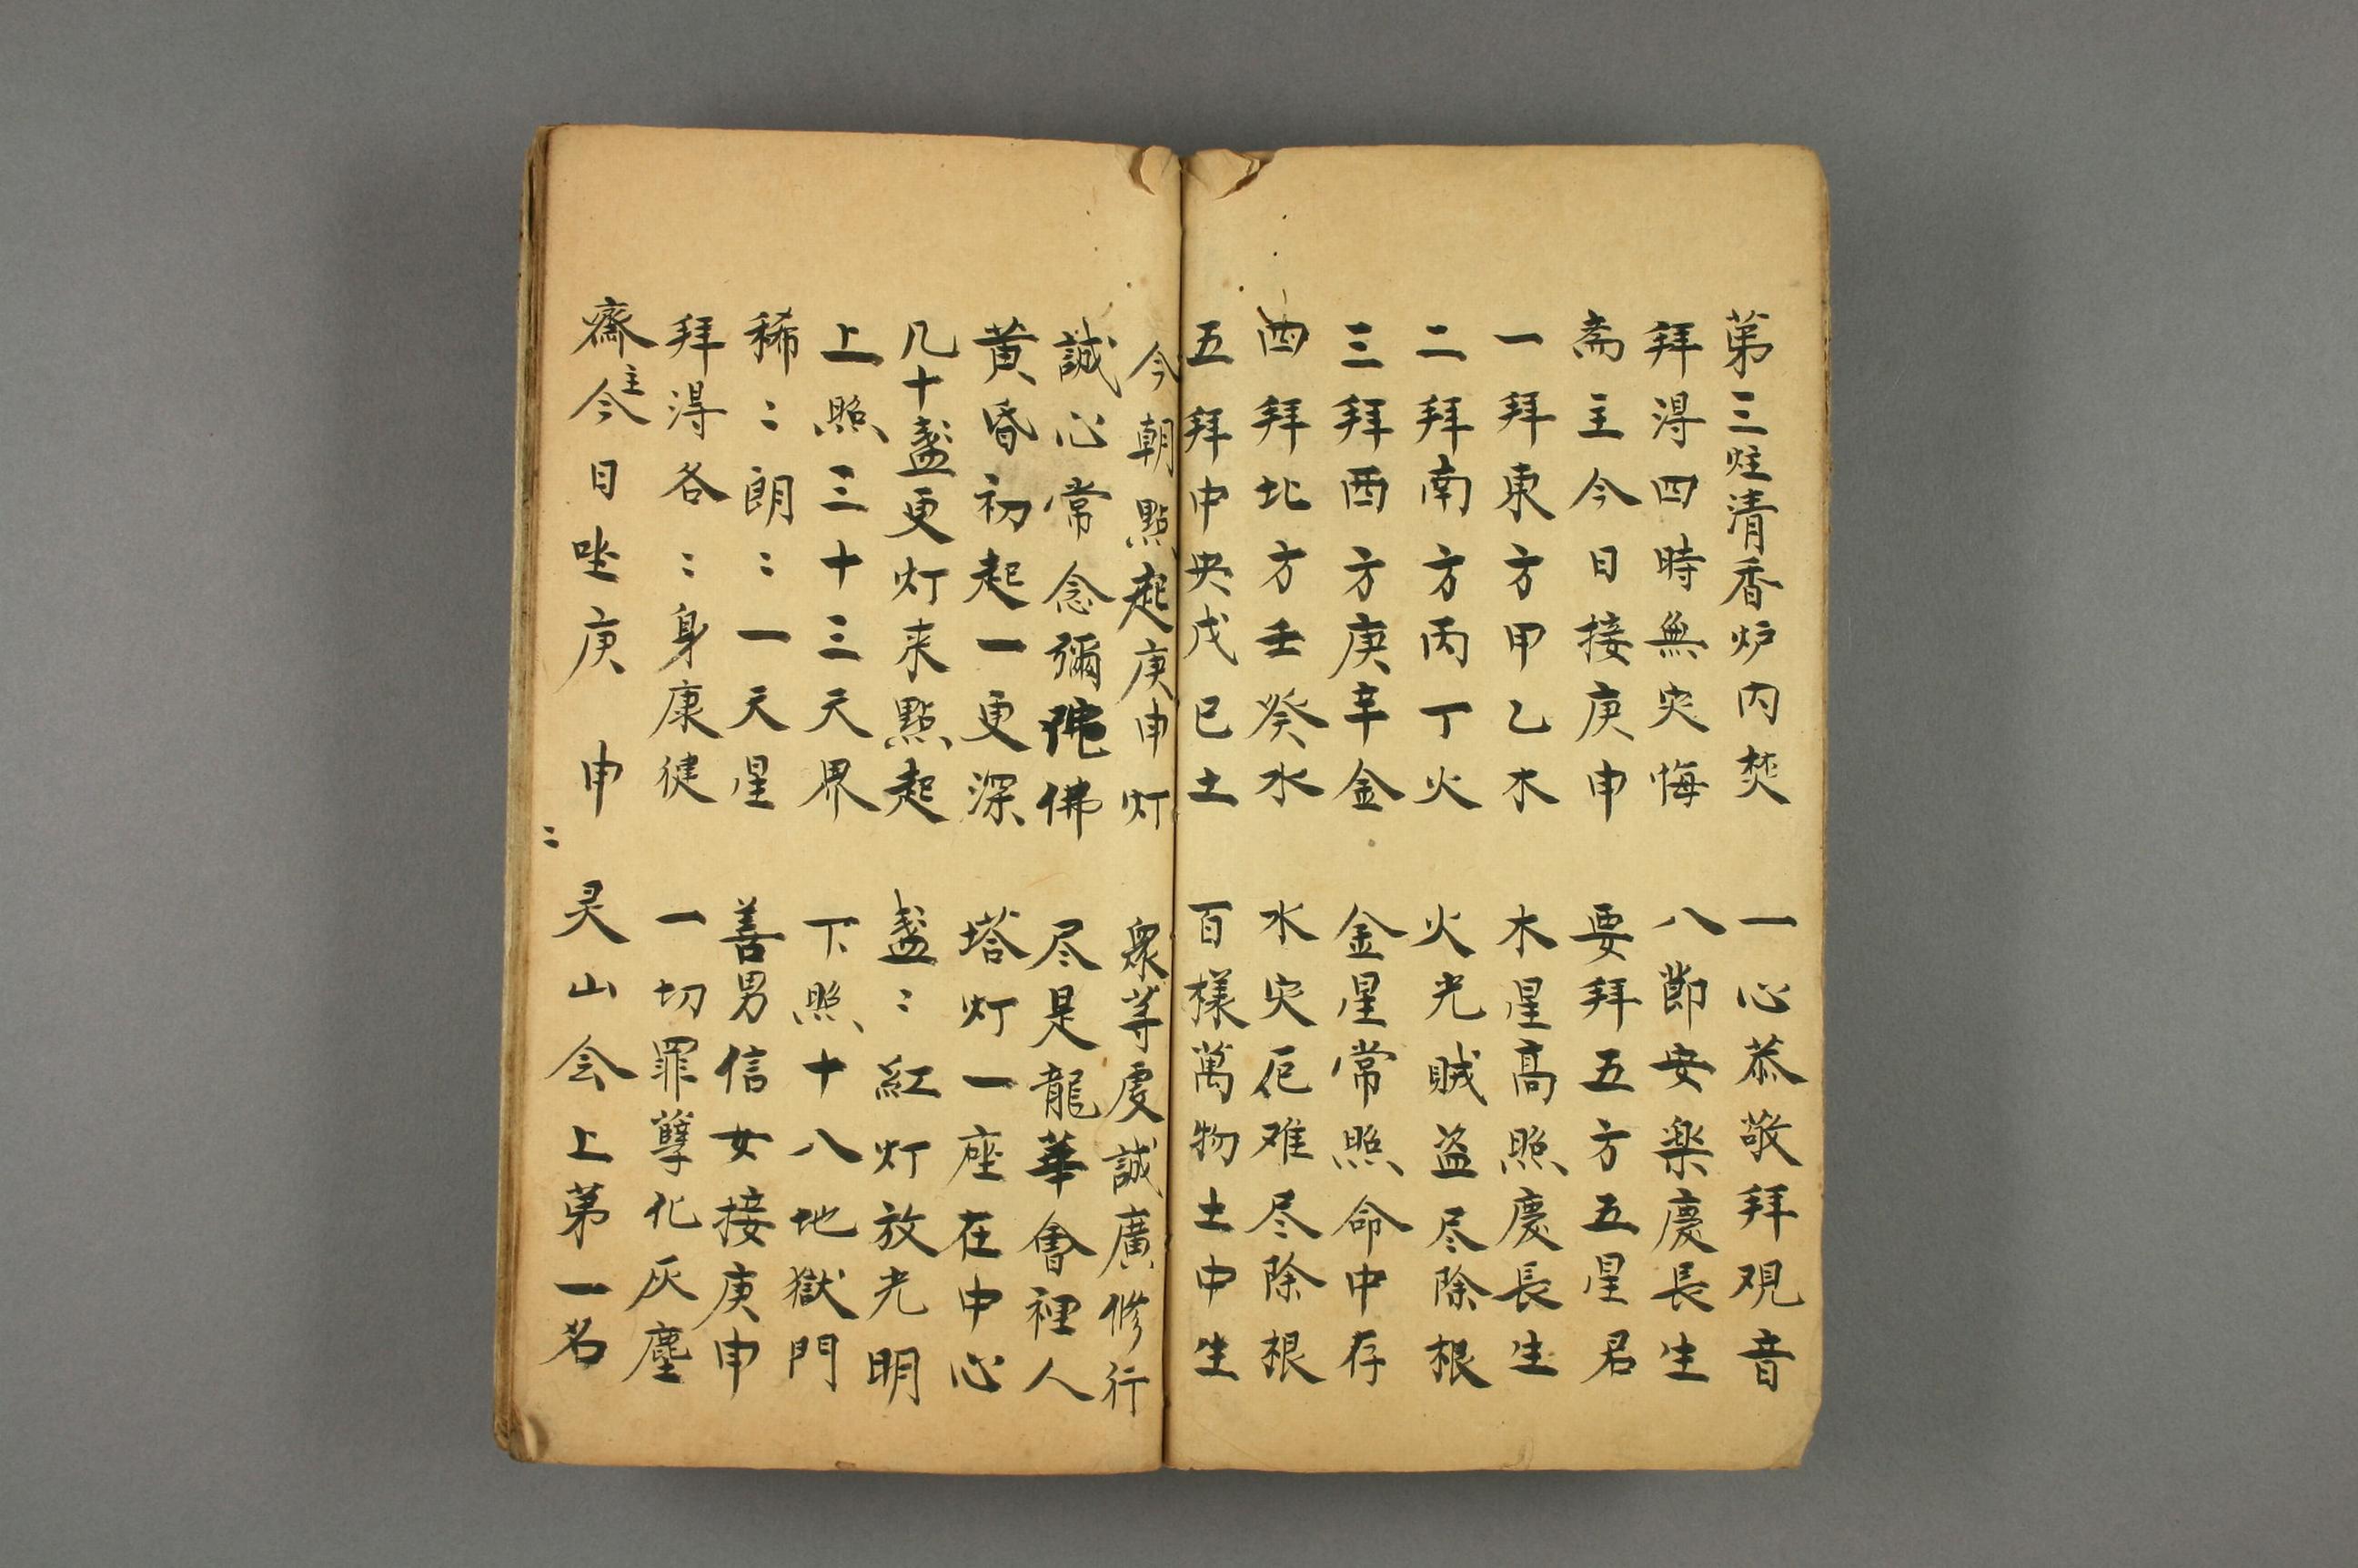 第三炷清香炉内焚　一心恭敬拜观音
拜淂四時無灾悔　八節安楽慶長生
斋主今日接庚申　要拜五方五星君
一拜東方甲乙木　木星高照慶長生
二拜南方丙丁火　火光賊盗尽除根
三拜西方庚辛金　金星常照命中存
四拜北方壬癸水　水灾厄难尽除根
五拜中央戊已土　百樣萬物土中生
今朝點起庚申灯　衆等虔誠廣修行
誠心常念彌陀佛　尽是龍華會裡人
黄昏初起一更深　塔灯一座在中心
几十盞更灯来點起　盞〻紅灯放光明
上照三十三天界　下照十八地獄門
稀〻朗〻一天星　善男信女接庚申
拜淂各〻身康健　一切罪孽化灰塵
齋主今日坐庚申〻　灵山会上第一名